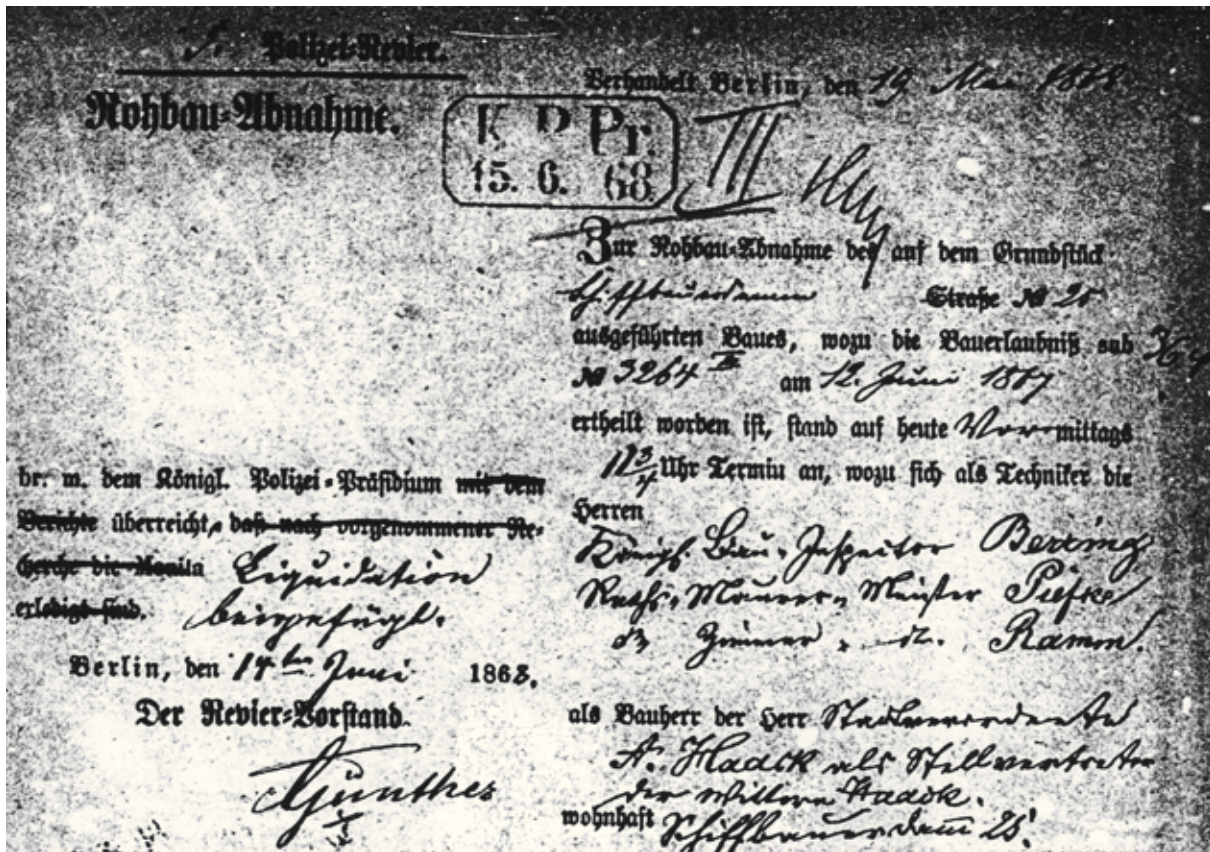 Polizei-Revier.
Rohbau-Abnahme.
br. m. dem Königl. Polizei-Präsidium mit dem
Berichte überreicht, daß nach vorgenommener Re-
cherche die Monita Liquidation
erledigt sind. beigefügt.
Berlin, den 14ten Juni 1868.
Der Revier-Vorstand.
Gunther
Verhandelt Berlin, den 19 Mai 1868
K. P. Pr.
15. 6. 68
III
Zur Rohbau-Abnahme des auf dem Grundstück
Schiffbauerdamm Straße № 25
ausgeführten Baues, wozu die Bauerlaubniß sub
№ 3264 III am 12. Juni 1867
ertheilt worden ist, stand auf heute Vormittags
11 3/4 Uhr Termin an, wozu sich als Techniker die
Herren
Königl. Bau-Inspector Bering
Raths-Maurer-Meister Piefke
do Zimmer - do. Ramon.
als Bauherr der Herr Stadtverordnete
A. Haack als Stellvertreter
der Wittwe Haack.
wohnhaft Schiffbauerdamm 25.